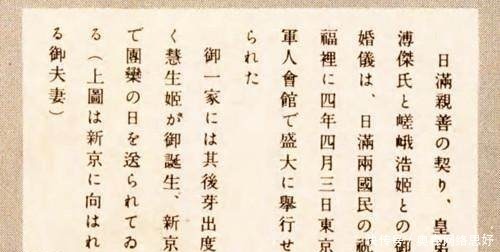 日滿親善の契り、皇弟
溥傑氏と嵯峨浩姬との
婚儀は、日滿兩國民の祝
福裡に四年四月三日東京
軍人會館で盛大に擧行せ
られた
御一家には其後芽出度
く慧生姬が御誕生、新京
で團欒の日を送られてゐ
る(上圖は新京に向はれ
る御夫妻)